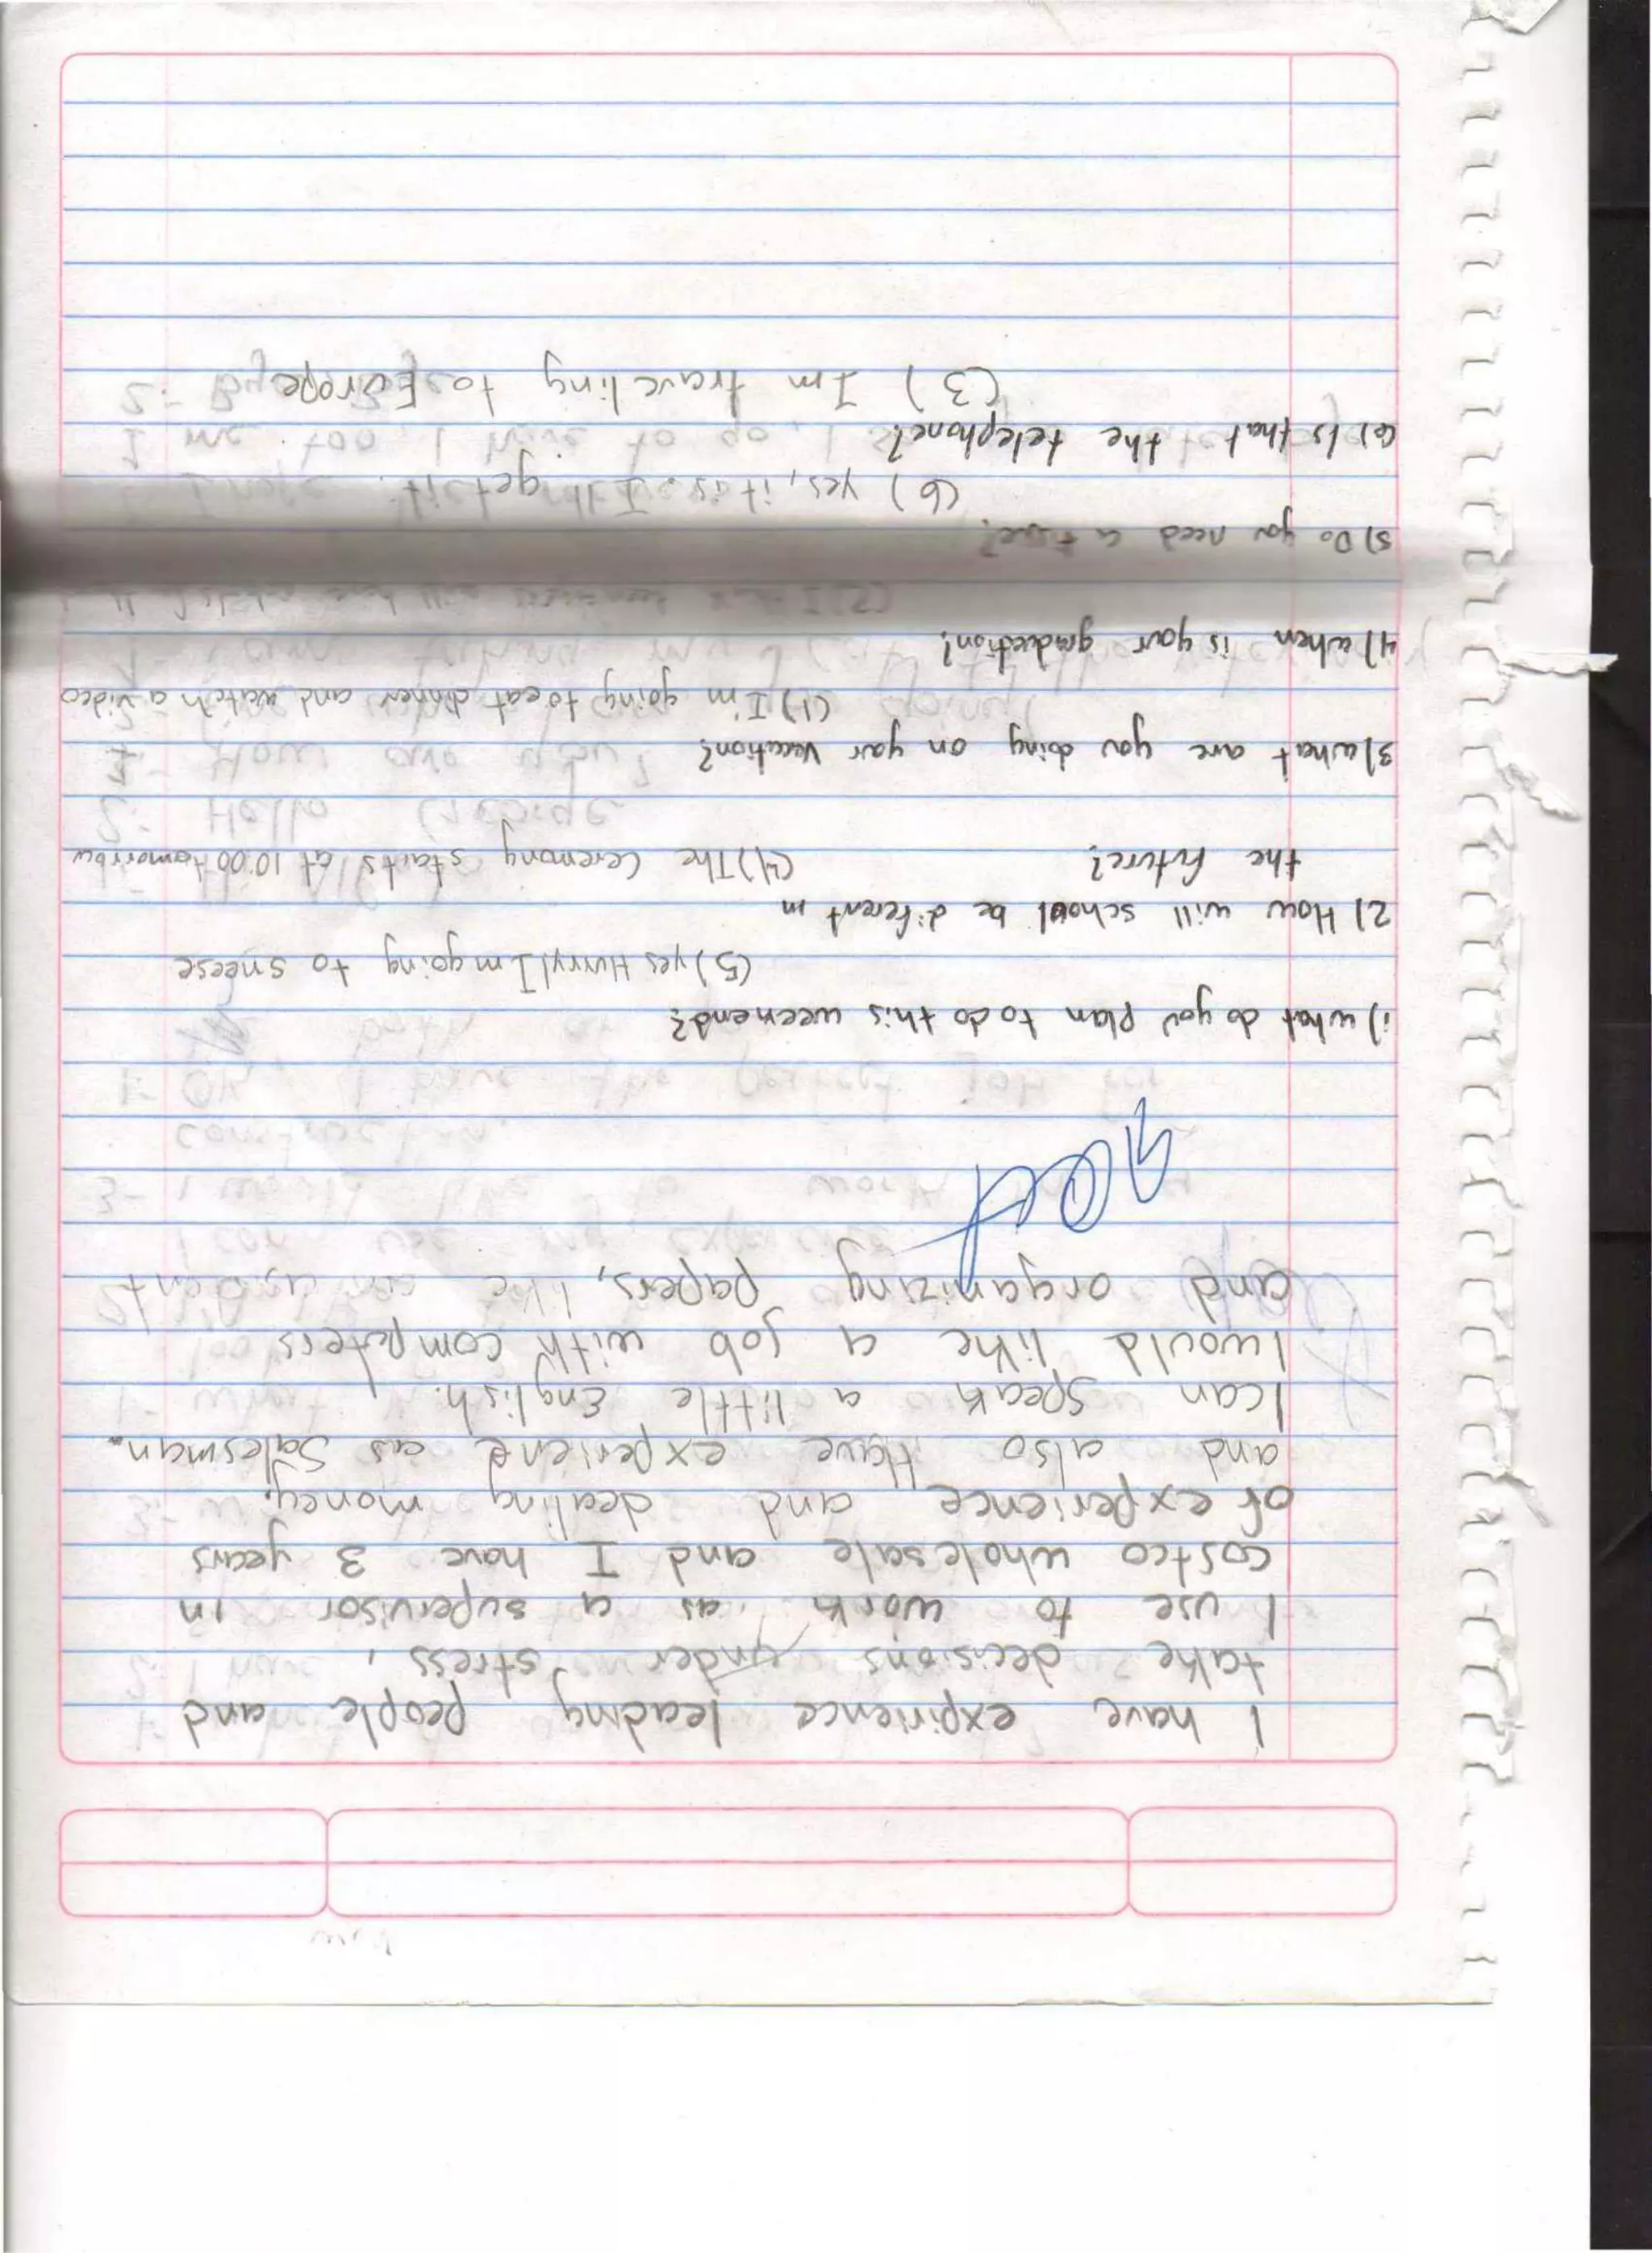 I have expirience leading people and
take decisions under stress,
I use to work as a supervisor in
costco wholesale and I have 3 years
of experience and dealing money.
and also Have experiene as Salesman.
I can speak a little English.
I would like a job with computers
and organizing papers, like an asistent
1) what do you plan to do this weenend?
(5) yes Hurry! Im going to sneese
2) How will school be diferent in
the future?
(4) The Ceremony starts at 10:00 tomorrow
3) what are you doing on your vacation?
(1) I'm going to eat dinner and watch a video
4) when is your graduction?
(2)
5) Do you need a
(6) yes, it is. I'll get it.
6) Is that the telephone?
(3) Im traveling to Europe